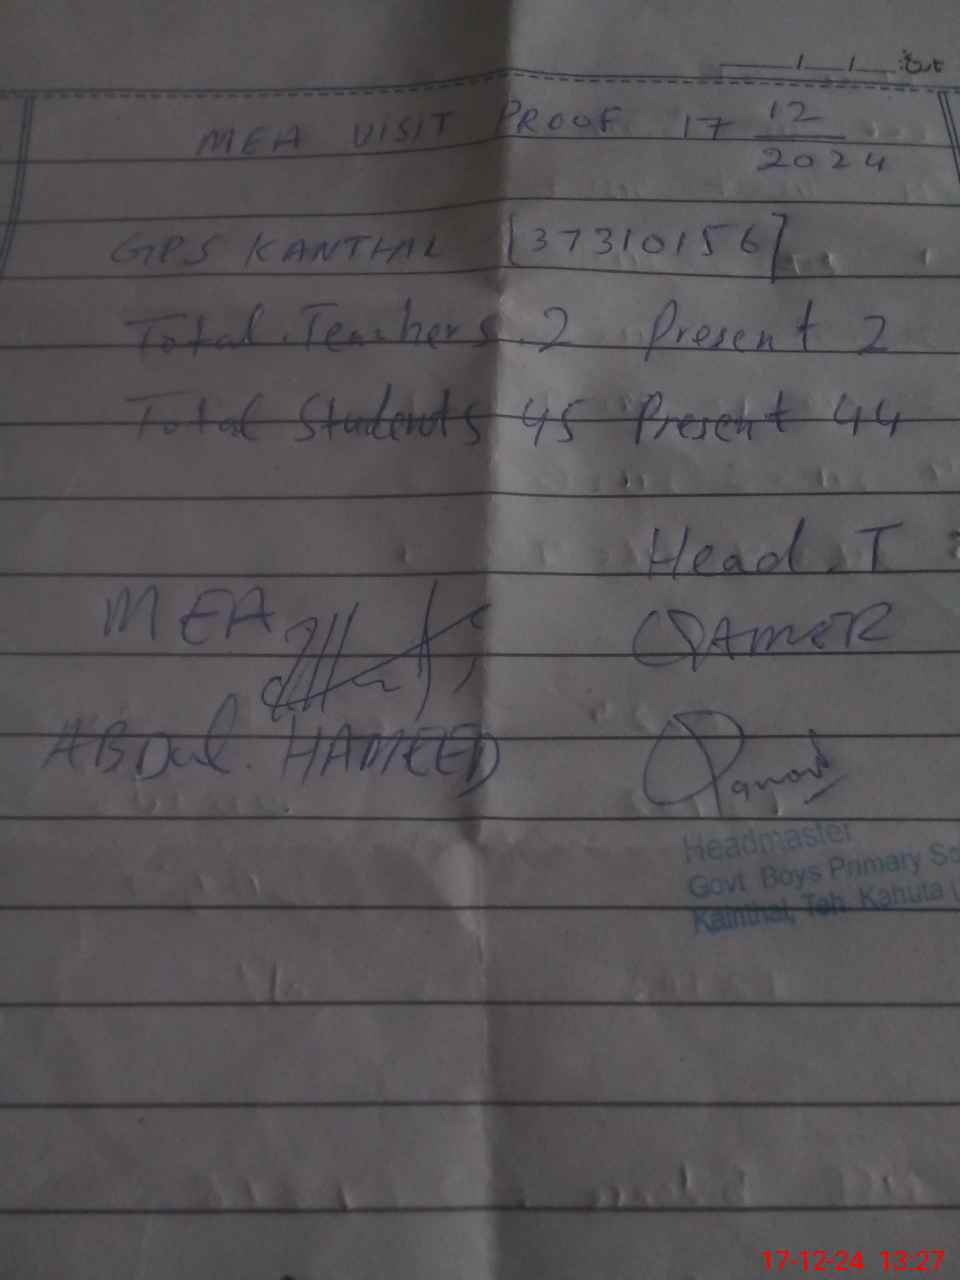 MEA VISIT PROOF 17 12
2024
GPS KANTHAL [37310156]
Total Teachers 2 Present 2
Total Students 45 Present 44
Head.T
MEA QAMER
ABDul. HAMEED
Headmaster
Govt Boys Primary Sc
Kainthal, Teh. Kahuta
17-12-24 13:27